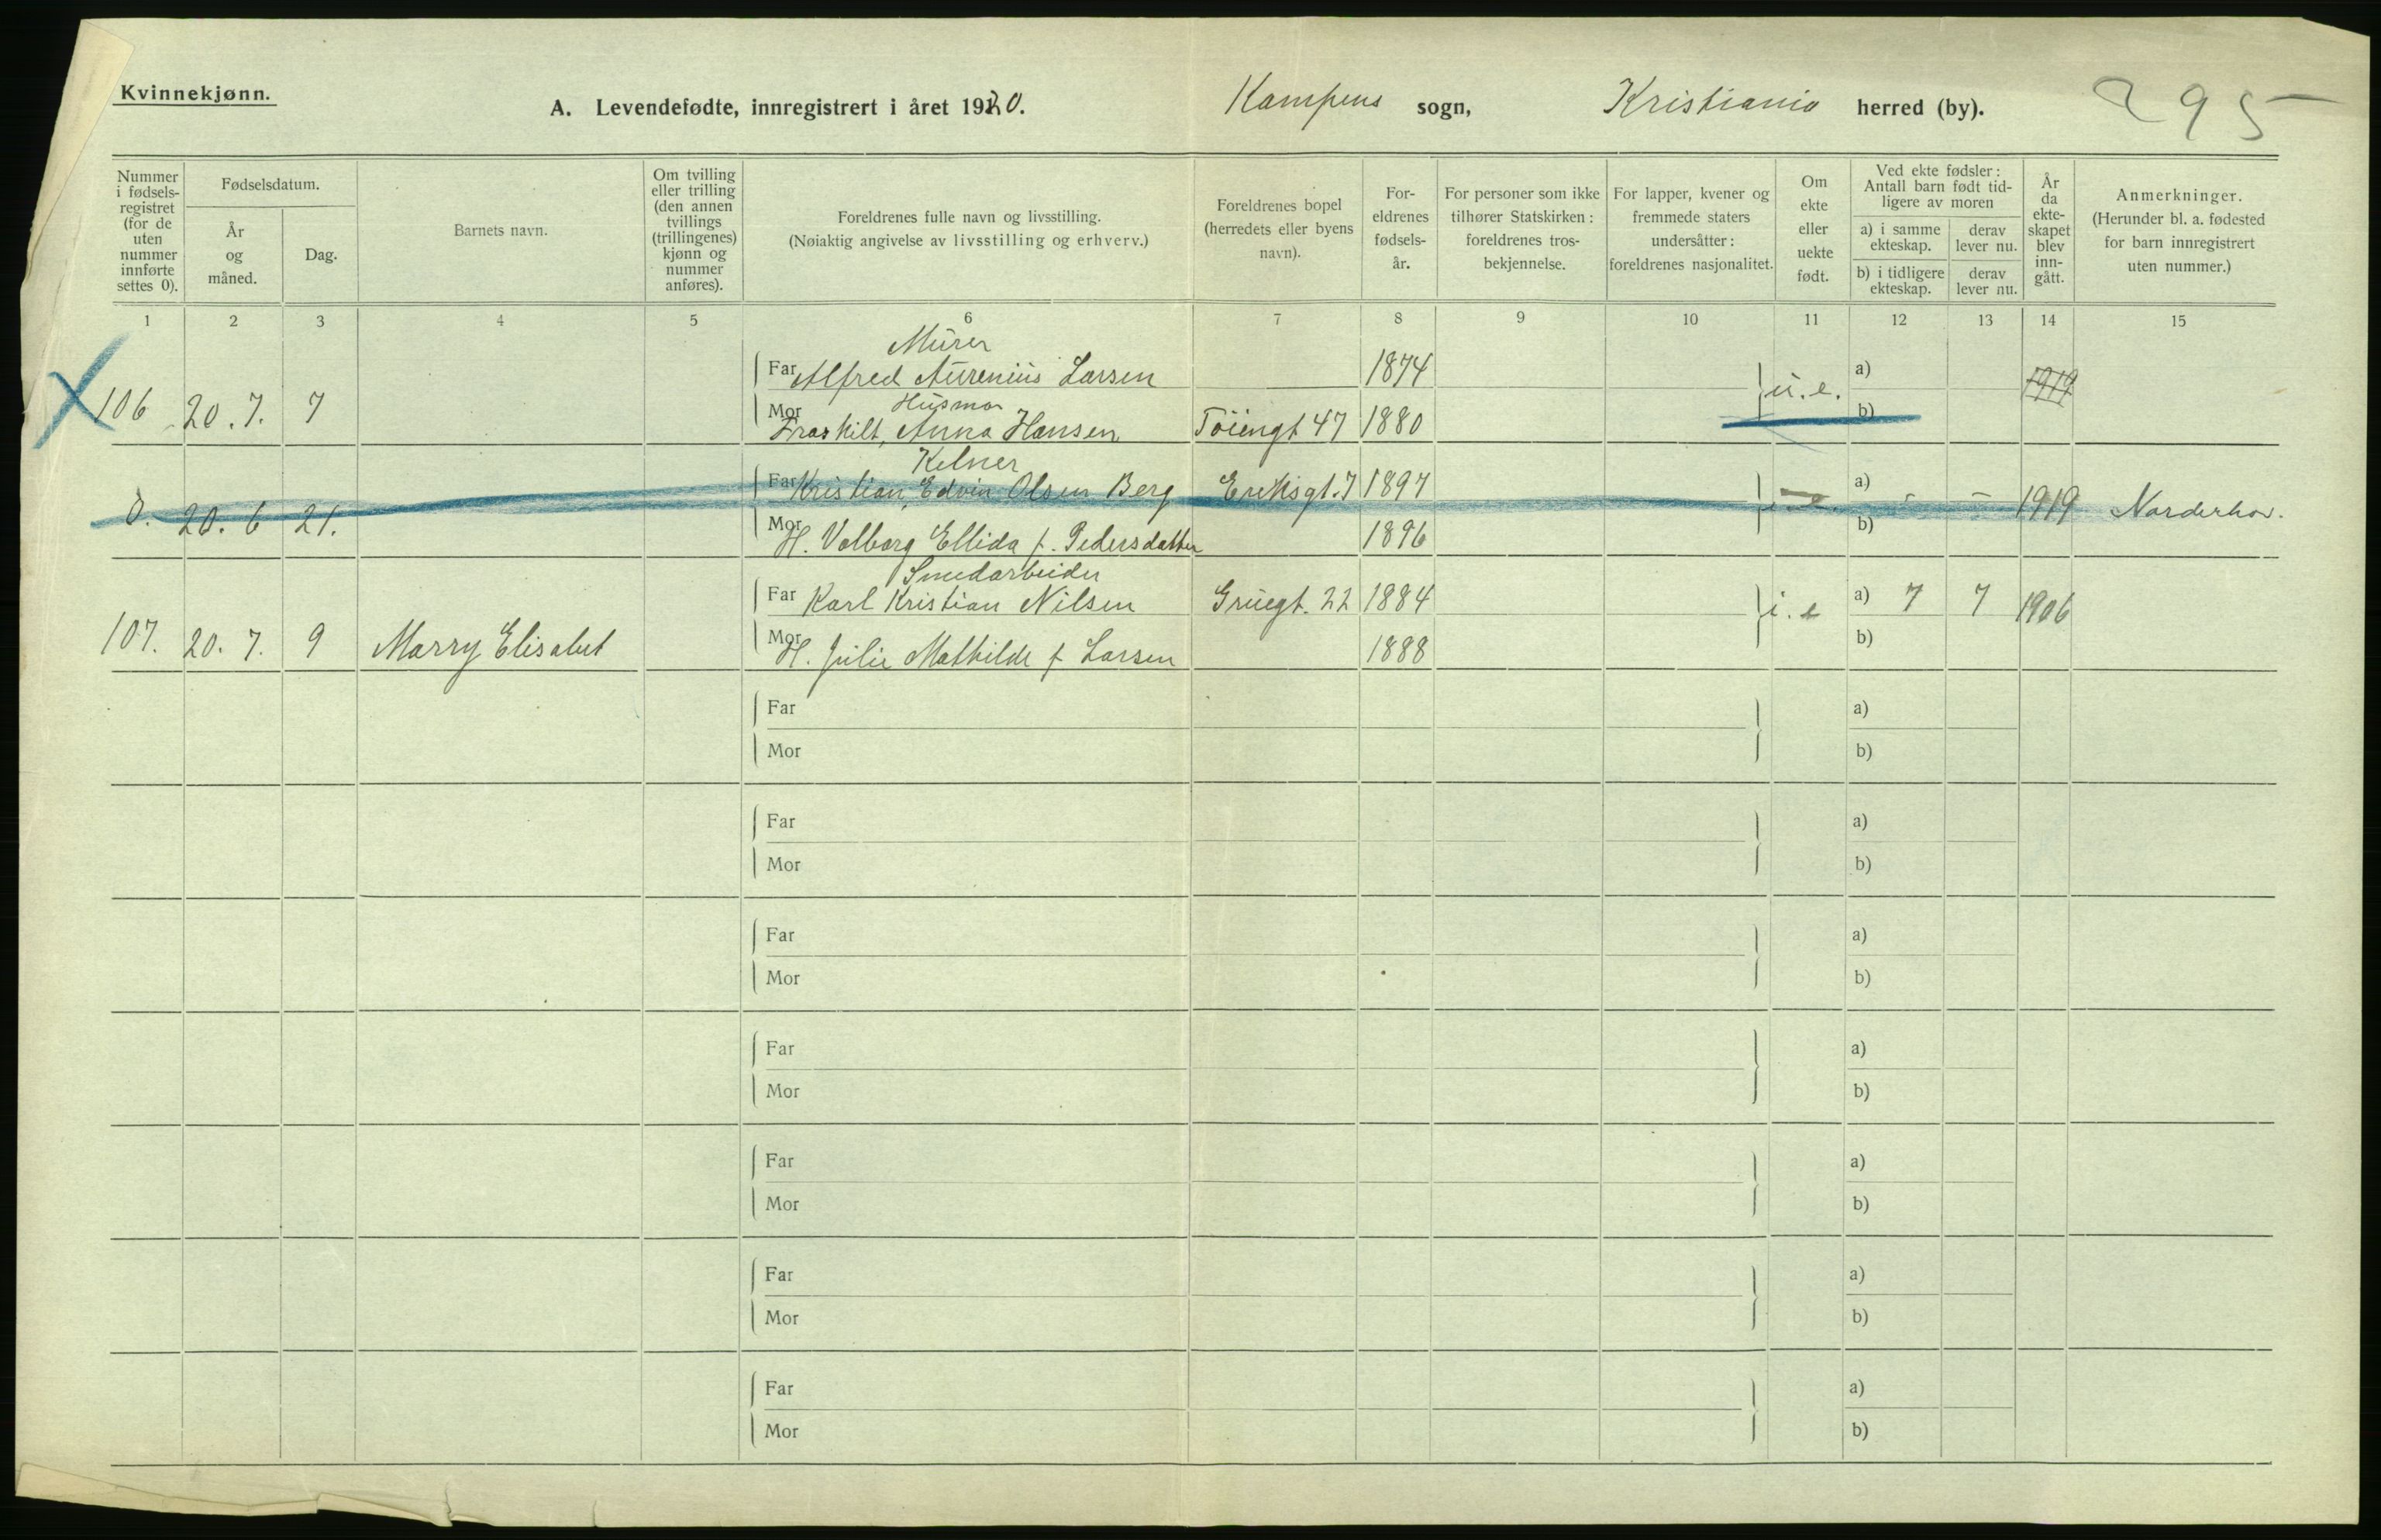 Kvinnekjønn.
A. Levendefødte, innregistrert i året 1920. Kampens sogn, Kristiania herred (by). 295
Nummer i fødsels-registret (for de uten nummer innførte settes 0).
Fødselsdatum.
År og måned.
Dag.
Barnets navn.
Om tvilling eller trilling (den annen tvillings (trillingenes) kjønn og nummer anføres).
Foreldrenes fulle navn og livsstilling.
(Nøiaktig angivelse av livsstilling og erhverv.)
Foreldrenes bopel (herredets eller byens navn).
For-eldrenes fødsels-år.
For personer som ikke tilhører Statskirken: foreldrenes tros-bekjennelse.
For lapper, kvener og fremmede staters undersåtter: foreldrenes nasjonalitet.
Om ekte eller uekte født.
Ved ekte fødsler: Antall barn født tid-ligere av moren
a) i samme ekteskap.
derav lever nu.
b) i tidligere ekteskap.
derav lever nu.
År da ekte-skapet blev inn-gått.
Anmerkninger.
(Herunder bl. a. fødested for barn innregistrert uten nummer.)
1 2 3 4 5 6 7 8 9 10 11 12 13 14 15
Murer
Far Alfred Aurenius Larsen 1874 a)
106 20. 7. 7 u. e. 1919
Husmor
Mor Fraskilt, Anna Hansen Töiengt 47 1880 b)
Kelner
Far Kristian Edvin Olsen Berg Eriksgt. 7 1897 a) - -
0. 20. 6 21. i e. 1919 Norderhov.
Mor H. Valborg Ellida f. Pedersdatter 1896 b)
Smedarbeider
Far Karl Kristian Nilsen Gruegt. 22 1884 a) 7 7
107. 20. 7. 9 Marry Elisabet i. e 1906
Mor H. Julie Mathilde f Larsen 1888 b)
Far a)
Mor b)
Far a)
Mor b)
Far a)
Mor b)
Far a)
Mor b)
Far a)
Mor b)
Far a)
Mor b)
Far a)
Mor b)